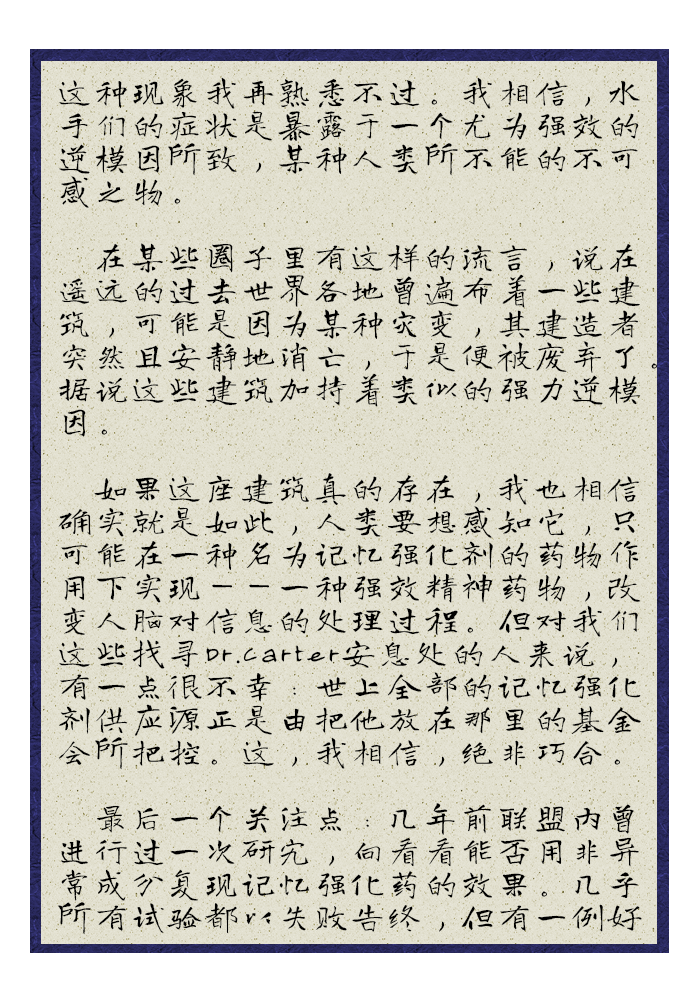 这种现象我再熟悉不过。我相信，水
手们的症状是暴露于一个尤为强效的
逆模因所致，某种人类所不能的不可
感之物。
在某些圈子里有这样的流言，说在
遥远的过去世界各地曾遍布着一些建
筑，可能是因为某种灾变，其建造者
突然且安静地消亡，于是便被废弃了。
据说这些建筑加持着类似的强力逆模
因。
如果这座建筑真的存在，我也相信
确实就是如此，人类要想感知它，只
可能在一种名为记忆强化剂的药物作
用下实现——一种强效精神药物，改
变人脑对信息的处理过程。但对我们
这些找寻Dr.Carter安息处的人来说，
有一点很不幸：世上全部的记忆强化
剂供应源正是由把他放在那里的基金
会所把控。这，我相信，绝非巧合。
最后一个关注点：几年前联盟内曾
进行过一次研究，向看看能否用非异
常成分复现记忆强化药的效果。几乎
所有试验都以失败告终，但有一例好